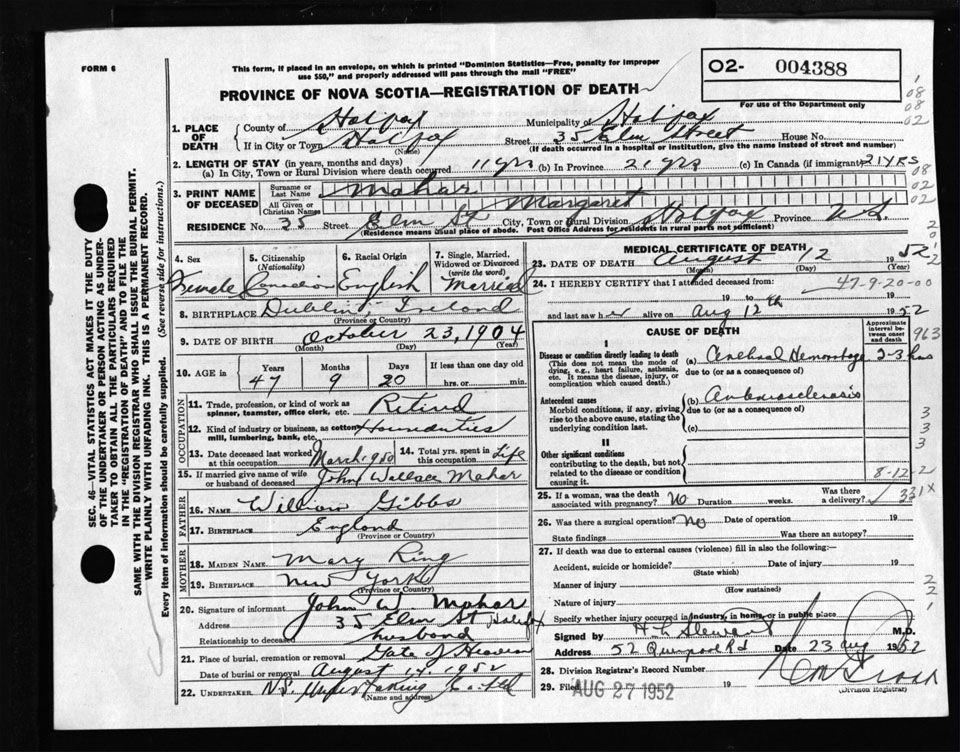 FORM 6
This form, if placed in an envelope, on which is printed "Dominion Statistics—Free, penalty for improper
use $50," and properly addressed will pass through the mail "FREE"
O2- 004388
For use of the Department only
PROVINCE OF NOVA SCOTIA—REGISTRATION OF DEATH
1. PLACE OF DEATH
County of Halifax Municipality of Halifax
If in City or Town Halifax Street 35 Elm Street House No.
(Name) (If death occurred in a hospital or institution, give its name instead of street and number)
2. LENGTH OF STAY (in years, months and days)
(a) In City, Town or Rural Division where death occurred 11 yrs (b) In Province 21 yrs (c) In Canada (if immigrant) 21 YRS
3. PRINT NAME OF DECEASED
Surname or Last Name Mahar
All Given or Christian Names Margaret
RESIDENCE No. 35 Street Elm St City, Town or Rural Division Halifax Province N.S.
(Residence means usual place of abode. Post Office Address for residents in rural parts not sufficient)
4. Sex Female
5. Citizenship (Nationality) Canadian
6. Racial Origin English
7. Single, Married, Widowed or Divorced (write the word) Married
8. BIRTHPLACE Dublin, Ireland
(Province or Country)
9. DATE OF BIRTH October 23, 1904
(Month) (Day) (Year)
10. AGE in Years 47 Months 9 Days 20 If less than one day old hrs. or min.
OCCUPATION
11. Trade, profession, or kind of work as spinner, teamster, office clerk, etc. Retired
12. Kind of industry or business, as cotton mill, lumbering, bank, etc.
13. Date deceased last worked at this occupation March
14. Total yrs. spent in this occupation Life
15. If married give name of wife or husband of deceased John Wallace Mahar
FATHER
16. NAME William Gibbs
17. BIRTHPLACE England
(Province or Country)
MOTHER
18. MAIDEN NAME Mary King
19. BIRTHPLACE New York
(Province or Country)
20. Signature of informant John W Mahar
Address 35 Elm St Halifax
Relationship to deceased husband
21. Place of burial, cremation or removal Gate of Heaven
Date of burial or removal August 14, 1952
22. UNDERTAKER N.S. Undertaking Co. Ltd
(Name and address)
MEDICAL CERTIFICATE OF DEATH
23. DATE OF DEATH August 12 1952
(Month) (Day) (Year)
24. I HEREBY CERTIFY that I attended deceased from:
47-9-20-00
19 to 19
and last saw her alive on Aug 12th 1952
CAUSE OF DEATH
Approximate interval between onset and death
I
Disease or condition directly leading to death
(This does not mean the mode of dying, e.g., heart failure, asthenia, etc. It means the disease, injury, or complication which caused death.)
(a) Cerebral Hemorrhage 2-3 hrs
due to (or as a consequence of)
Antecedent causes
Morbid conditions, if any, giving rise to the above cause, stating the underlying condition last.
(b) Arteriosclerosis
due to (or as a consequence of)
(c)
II
Other significant conditions
contributing to the death, but not related to the disease or condition causing it.
8-12-2
25. If a woman, was the death associated with pregnancy? No Duration weeks. Was there a delivery? 331X
26. Was there a surgical operation? No Date of operation 19
State findings Was there an autopsy?
27. If death was due to external causes (violence) fill in also the following:—
Accident, suicide or homicide? Date of injury 19
(State which)
Manner of injury
(How sustained)
Nature of injury
Specify whether injury occurred in industry, in home, or in public place
Signed by H L Stewart M.D.
Address 52 Quinpool Rd Date 23 Aug 1952
28. Division Registrar's Record Number
29. Filed AUG 27 1952
(Division Registrar)
SEC. 46—VITAL STATISTICS ACT MAKES IT THE DUTY
OF THE UNDERTAKER OR PERSON ACTING AS UNDER-
TAKER TO OBTAIN ALL THE PARTICULARS REQUIRED
IN THE "REGISTRATION OF DEATH" AND TO FILE THE
SAME WITH THE DIVISION REGISTRAR WHO SHALL ISSUE THE BURIAL PERMIT.
WRITE PLAINLY WITH UNFADING INK. THIS IS A PERMANENT RECORD.
Every item of information should be carefully supplied. (See reverse side for instructions.)